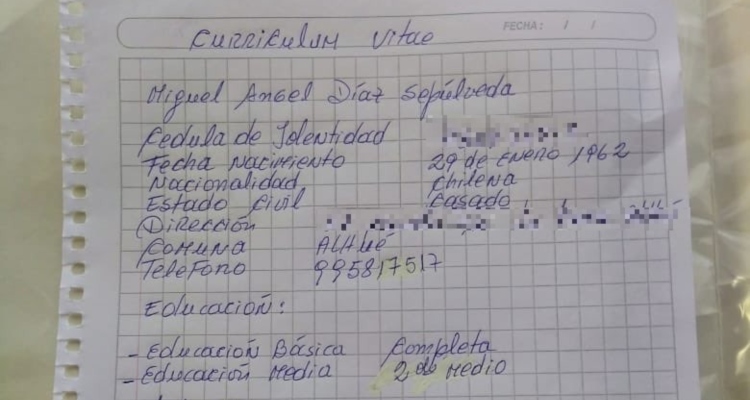 FECHA: / /
Curriculum Vitae
Miguel Angel Díaz Sepúlveda
Cedula de Identidad
Fecha Nacimiento 29 de Enero 1962
Nacionalidad Chilena
Estado Civil Casado
Dirección
Comuna Alhué
Telefono 995817517
Educación:
- Educación Básica Completa
- Educación Media 2do Medio